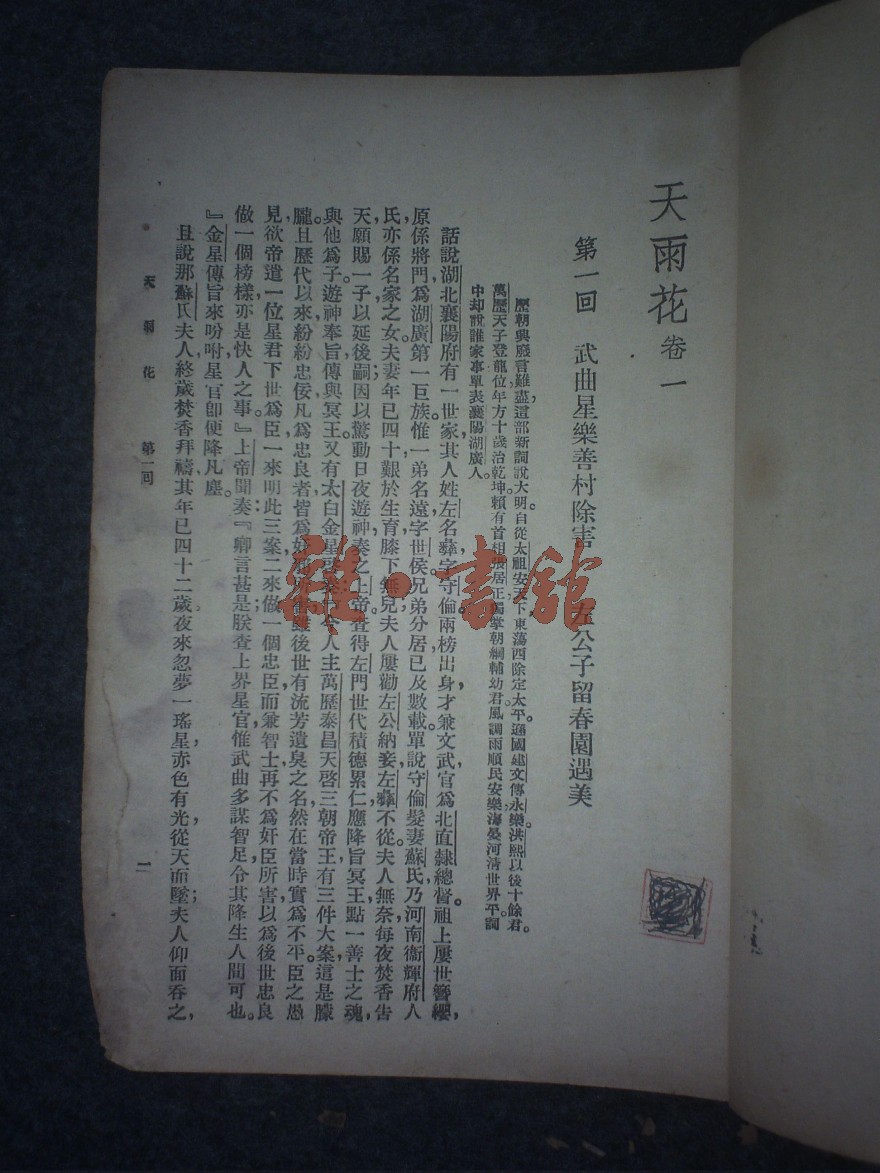 天雨花 卷一
第一回 武曲星樂善村除害 左公子留春園遇美
歷朝興廢言難盡，這部新詞說大明。自從太祖安天下，東蕩西除定太平。遜國建文傳永樂，洪熙以後十餘君。
萬歷天子登龍位，年方十歲治乾坤。賴有首相張居正，獨掌朝綱輔幼君。風調雨順民安樂，海晏河清世界平。詞
中却說誰家事，單表襄陽湖廣人。
話說湖北襄陽府有一世家，其人姓左名彝字守倫，兩榜出身，才兼文武，官爲北直隸總督。祖上屢世簪纓，
原係將門，爲湖廣第一巨族。惟一弟名遠字世侯，兄弟分居已及數載。單說守倫髮妻蘇氏，乃河南衞輝府人
氏，亦係名家之女。夫妻年已四十，艱於生育，膝下無兒。夫人屢勸左公納妾，左彝不從。夫人無奈，每夜焚香告
天，願賜一子，以延後嗣。因以驚動日夜遊神，奏之上帝。查得左門世代積德累仁，應降旨冥王，點一善士之魂，
與他爲子。遊神奉旨，傳與冥王。又有太白金星啓奏：今人主萬歷泰昌天啓三朝帝王有三件大案，這是朦
朧。且歷代以來，紛紛忠佞，凡爲忠良者，皆爲奸所害，雖後世有流芳遺臭之名，然在當時實爲不平。臣之愚
見，欲帝遣一位星君下世爲臣，一來明此三案；二來做一個忠臣而兼智士，再不爲奸臣所害，以爲後世忠良
做一個榜樣，亦是快人之事。』上帝聞奏：『卿言甚是，朕查上界星官，惟武曲多謀智足，令其降生人間可也。
』金星傳旨來吩咐星官，卽便降凡塵。
且說那蘇氏夫人，終歲焚香拜禱，其年已四十二歲，夜來忽夢一瑤星，赤色有光，從天而墜；夫人仰而吞之，
天雨花 第一回 一
雜·書館